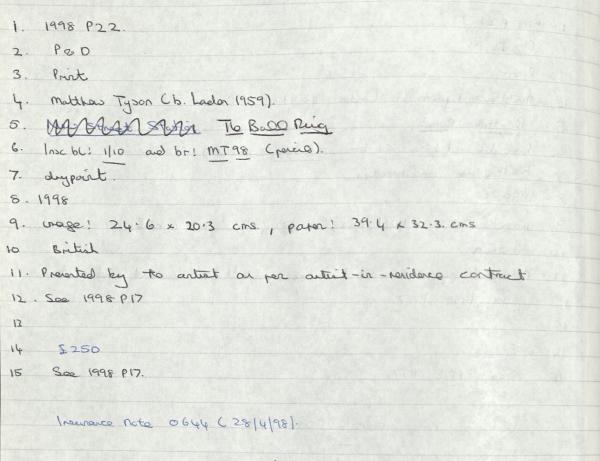 1. 1998 P22.
2. P & D
3. Print
4. Matthew Tyson (b. London 1959).
5. The Bull Ring
6. Insc bl: 1/10 and br: MT98 (pencil).
7. drypoint.
8. 1998
9. image: 24.6 x 20.3 cms, paper: 39.4 x 32.3. cms
10 British
11. Presented by the artist as per artist-in-residence contract
12. See 1998 P17
13
14 £250
15 See 1998 P17.
Insurance note 0644 (28/4/98).